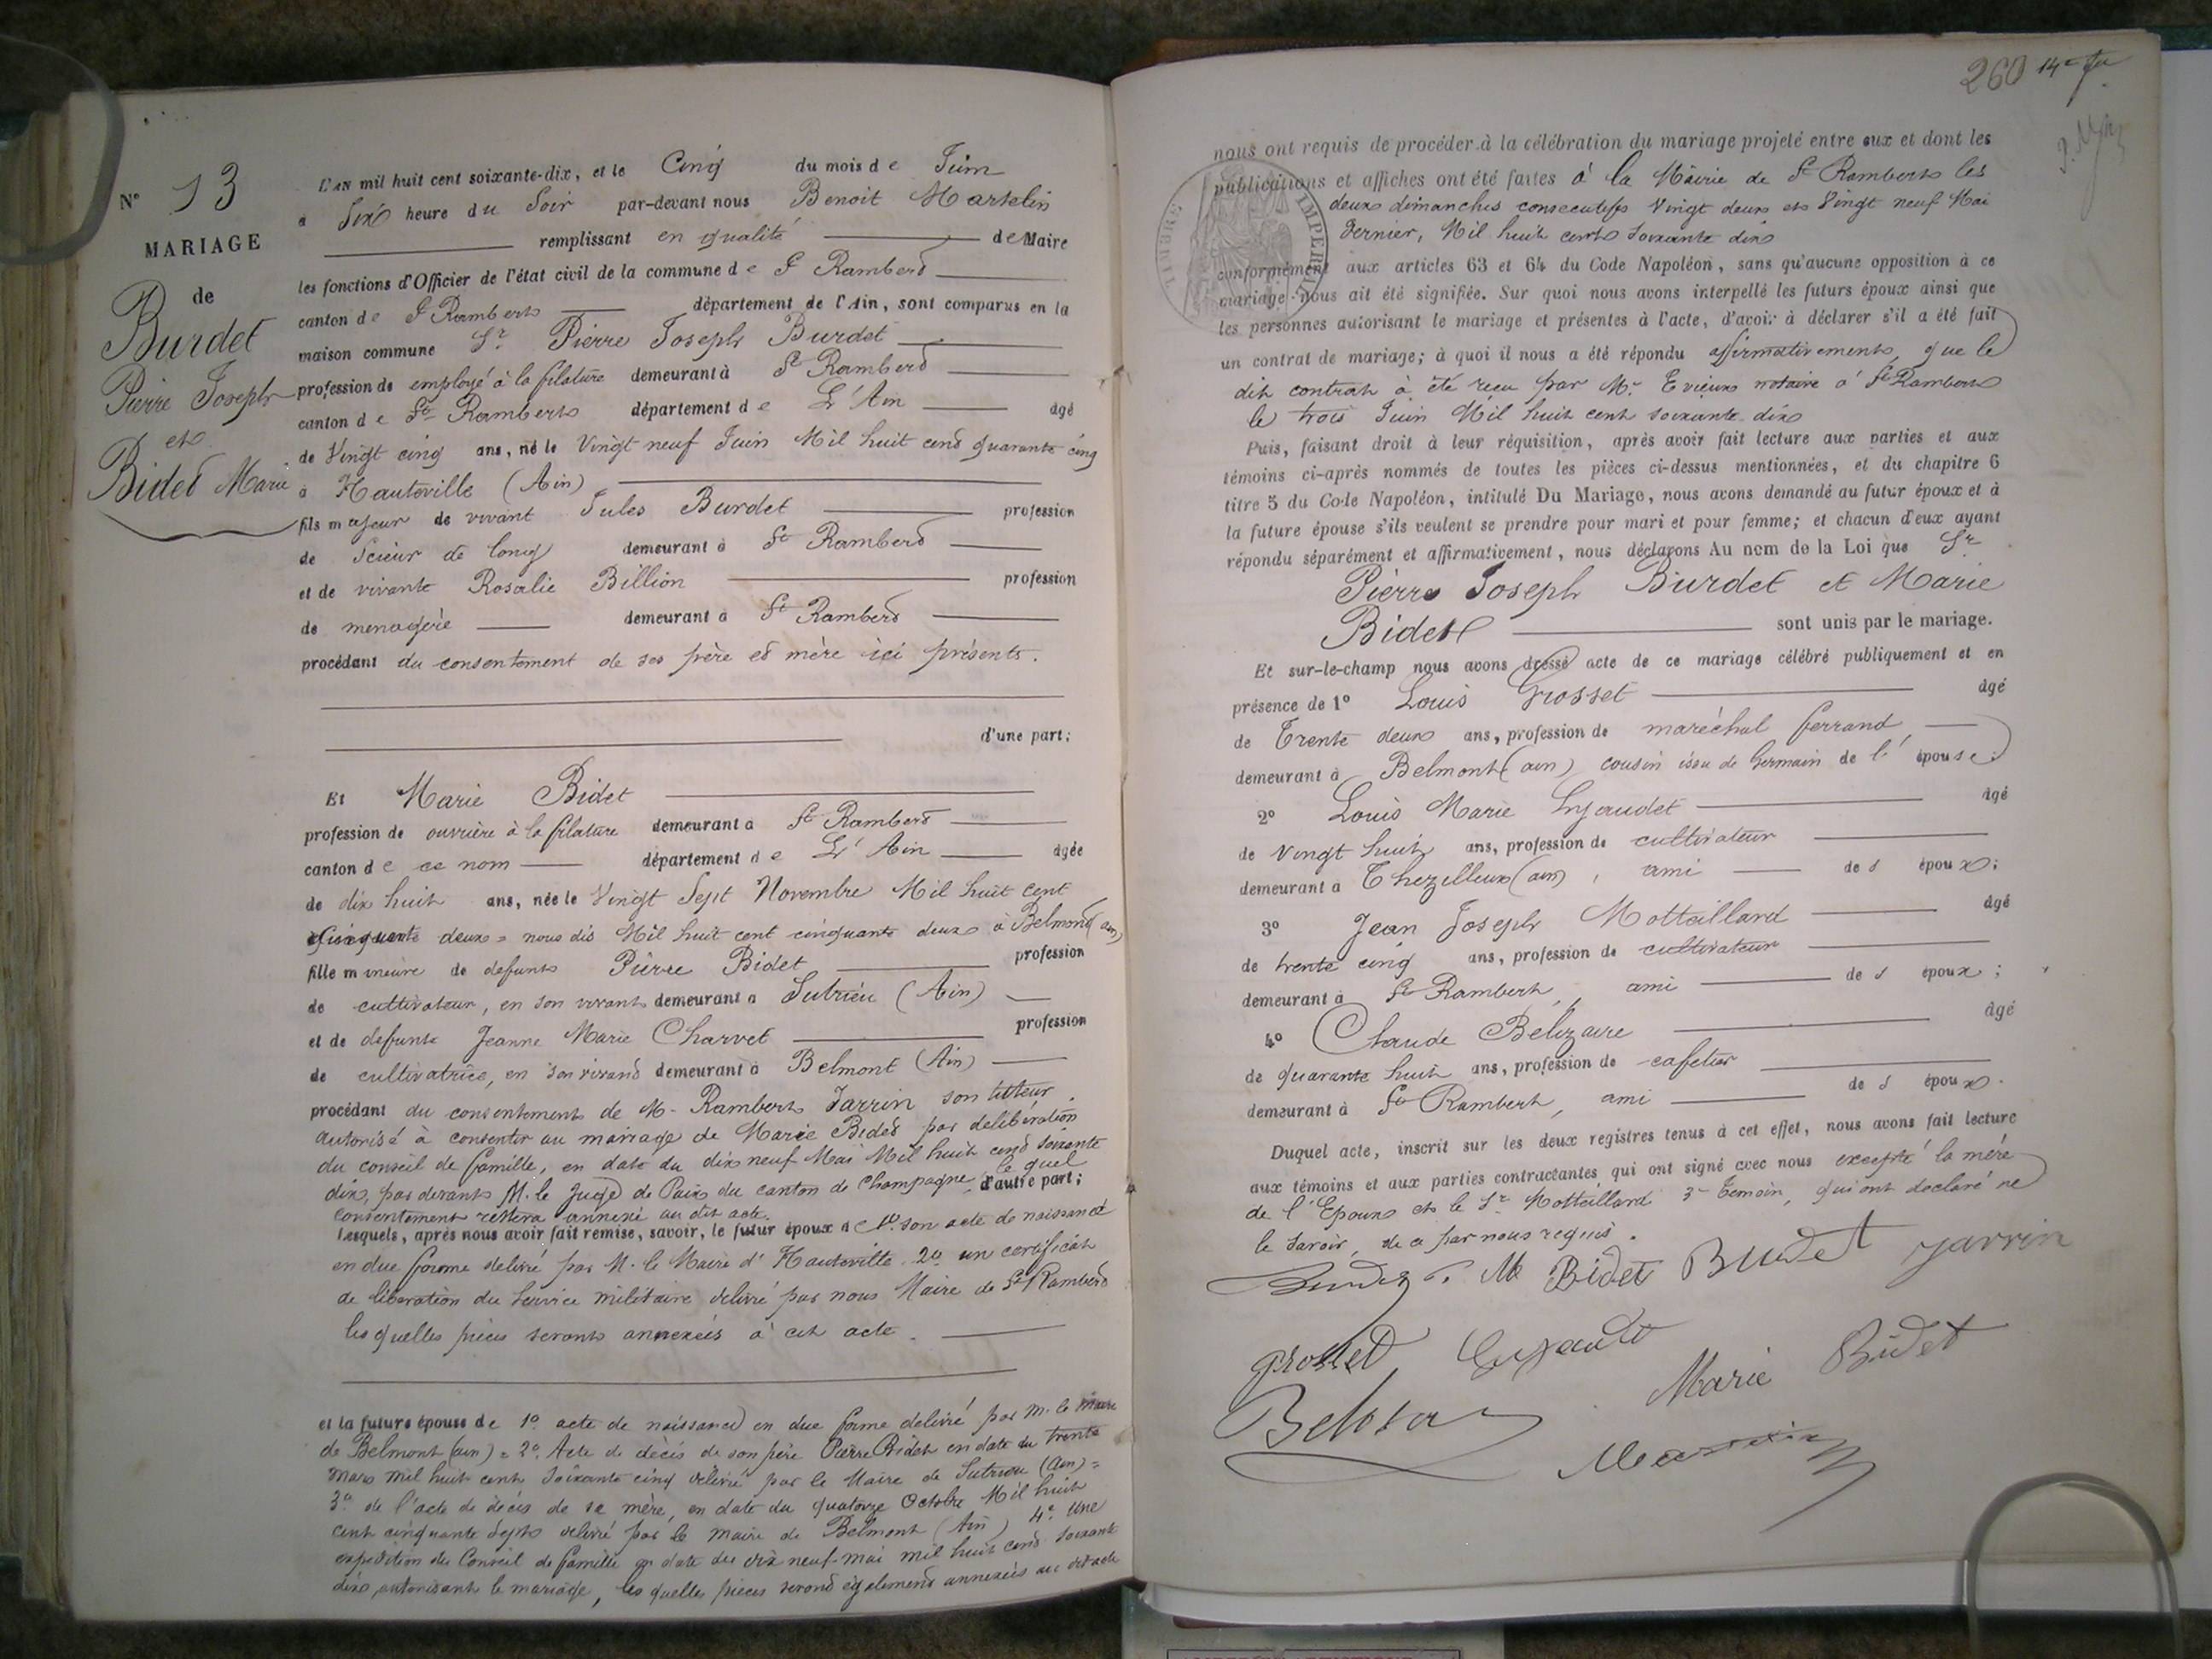 N° 13
MARIAGE
de
Burdet
Pierre Joseph
et
Bidet Marie
L'AN mil huit cent soixante-dix, et le Cinq du mois de Juin
à Six heure du Soir par-devant nous Benoit Martelin
remplissant en qualité de Maire
les fonctions d'Officier de l'état civil de la commune de St Rambert
canton de St Rambert département de l'Ain, sont comparus en la
maison commune Sr Pierre Joseph Burdet
profession de employé à la filature demeurant à St Rambert
canton de St Rambert département de L'Ain âgé
de Vingt cinq ans, né le Vingt neuf Juin Mil huit cent quarante cinq
à Hauteville (Ain)
fils majeur de vivant Jules Burdet profession
de Scieur de long demeurant à St Rambert
et de vivante Rosalie Billion profession
de menagère demeurant à St Rambert
procédant du consentement de ses père et mère ici présents.
d'une part;
Et Marie Bidet
profession de ouvrière à la filature demeurant à St Rambert
canton de ce nom département de L'Ain âgée
de dix huit ans, née le Vingt Sept Novembre Mil huit cent
cinquante deux = nous dis Mil huit cent cinquante deux à Belmont (ain)
fille mineure de defunt Pierre Bidet profession
de cultivateur, en son vivant demeurant à Sutrieu (Ain)
et de defunte Jeanne Marie Charvet profession
de cultivatrice, en son vivant demeurant à Belmont (Ain)
procédant du consentement de M. Rambert Jarrin son tuteur,
autorisé à consentir au mariage de Marie Bidet par deliberation
du conseil de famille, en date du dix neuf Mai Mil huit cent soixante
dix, par devant M. le Juge de Paix du canton de Champagne, le quel d'autre part;
consentement restera annexé au dit acte.
Lesquels, après nous avoir fait remise, savoir, le futur époux de 1° son acte de naissance
en due forme delivré par M. le Maire d'Hauteville 2° un certificat
de libération du Service militaire delivré par nous Maire de St Rambert
les quelles pièces seront annexées à cet acte.
et la future épouse de 1° acte de naissance en due forme delivré par M. le Maire
de Belmont (ain) = 2° Acte de décès de son père Pierre Bidet en date du trente
Mars mil huit cent soixante cinq delivré par le Maire de Sutrieu (Ain) =
3° de l'acte de décès de sa mère, en date du quatorze Octobre Mil huit
cent cinquante sept delivré par le Maire de Belmont (Ain) 4° Une
expedition du Conseil de famille en date du dix neuf mai mil huit cent soixante
dix, autorisant le mariage, les quelles pieces seront également annexées au dit acte
260 14e
nous ont requis de procéder à la célébration du mariage projeté entre eux et dont les
publications et affiches ont été faites à la Mairie de St Rambert les
deux dimanches consecutifs Vingt deux et Vingt neuf Mai
dernier, Mil huit cent soixante dix
TIMBRE IMPERIAL
conformément aux articles 63 et 64 du Code Napoléon, sans qu'aucune opposition à ce
mariage nous ait été signifiée. Sur quoi nous avons interpellé les futurs époux ainsi que
les personnes autorisant le mariage et présentes à l'acte, d'avoir à déclarer s'il a été fait
un contrat de mariage; à quoi il nous a été répondu affirmativement, que le
dit contrat à été reçu par Mr Evieux notaire à St Rambert
le trois Juin Mil huit cent soixante dix
Puis, faisant droit à leur réquisition, après avoir fait lecture aux parties et aux
témoins ci-après nommés de toutes les pièces ci-dessus mentionnées, et du chapitre 6
titre 5 du Code Napoléon, intitulé Du Mariage, nous avons demandé au futur époux et à
la future épouse s'ils veulent se prendre pour mari et pour femme; et chacun d'eux ayant
répondu séparément et affirmativement, nous déclarons Au nom de la Loi que Sr
Pierre Joseph Burdet et Marie
Bidet sont unis par le mariage.
Et sur-le-champ nous avons dressé acte de ce mariage célébré publiquement et en
présence de 1° Louis Grosset âgé
de Trente deux ans, profession de maréchal ferrand,
demeurant à Belmont (ain) cousin issu de Germain de l'épouse;
2° Louis Marie âgé
de Vingt huit ans, profession de cultivateur
demeurant à Thezillieux (ain), ami de l époux;
3° Jean Joseph Mottaillard âgé
de trente cinq ans, profession de cultivateur
demeurant à St Rambert, ami de l époux;
4° Claude Belizaire âgé
de quarante huit ans, profession de cafetier
demeurant à St Rambert, ami de l époux.
Duquel acte, inscrit sur les deux registres tenus à cet effet, nous avons fait lecture
aux témoins et aux parties contractantes qui ont signé avec nous excepté la mère
de l'Epoux et le Sr Mottaillard 3e témoin, qui ont declaré ne
le savoir, de ce par nous requis.
M Bidet Burdet Jarrin
Grosset
Marie Bidet
Martelin